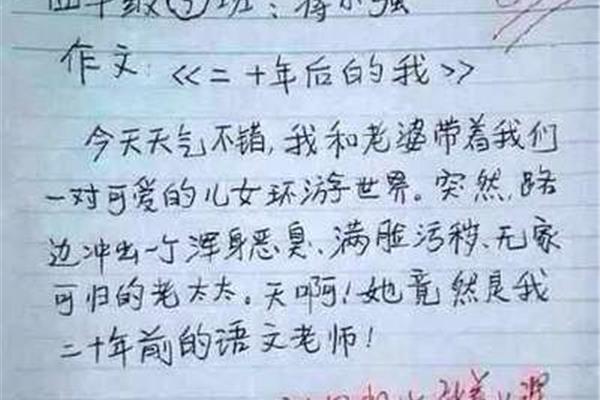 四年级(3)班:蒋小强
作文:《二十年后的我》
今天天气不错,我和老婆带着我们
一对可爱的儿女环游世界。突然,路
边冲出一个浑身恶臭、满脏污秽、无家
可归的老太太。天啊!她竟然是我
二十年前的语文老师!